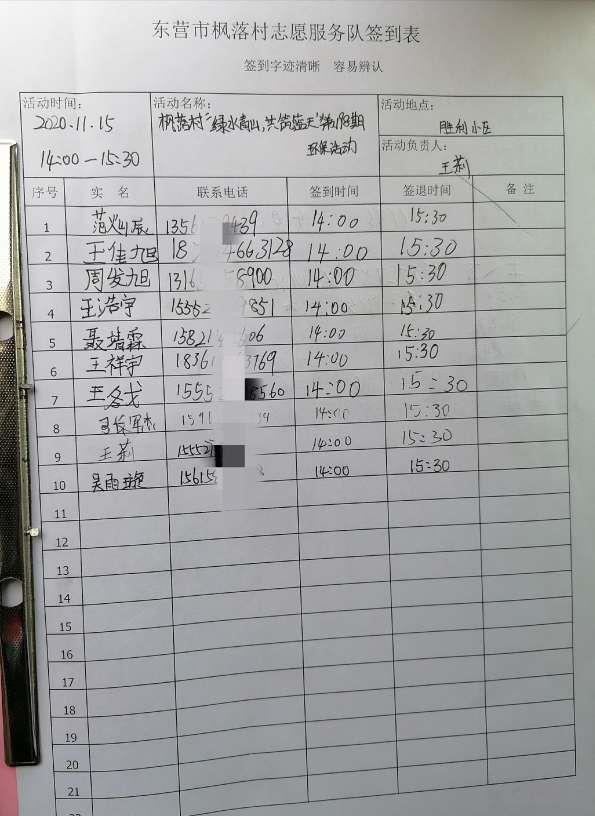 东营市枫落村志愿服务队签到表
签到字迹清晰 容易辨认
活动时间: 活动名称: 活动地点:
2020.11.15 枫落村“绿水青山,共筑蓝天”第 期 胜利小区
14:00—15:30 环保活动 活动负责人:
王莉
序号 实 名 联系电话 签到时间 签退时间 备 注
1 范 辰 1356 439 14:00 15:30
2 王佳旭 18 4663128 14:00 15:30
3 周发旭 1316 8900 14:00 15:30
4 王浩宇 15552 1851 14:00 15:30
5 聂 霖 15821 606 14:00 15:30
6 王祥宇 18361 3769 14:00 15:30
7 王冬戈 1555 8560 14:00 15:30
8 1591 14:00 15:30
9 王莉 15552 14:00 15:30
10 吴雨 15615 14:00 15:30
11
12
13
14
15
16
17
18
19
20
21